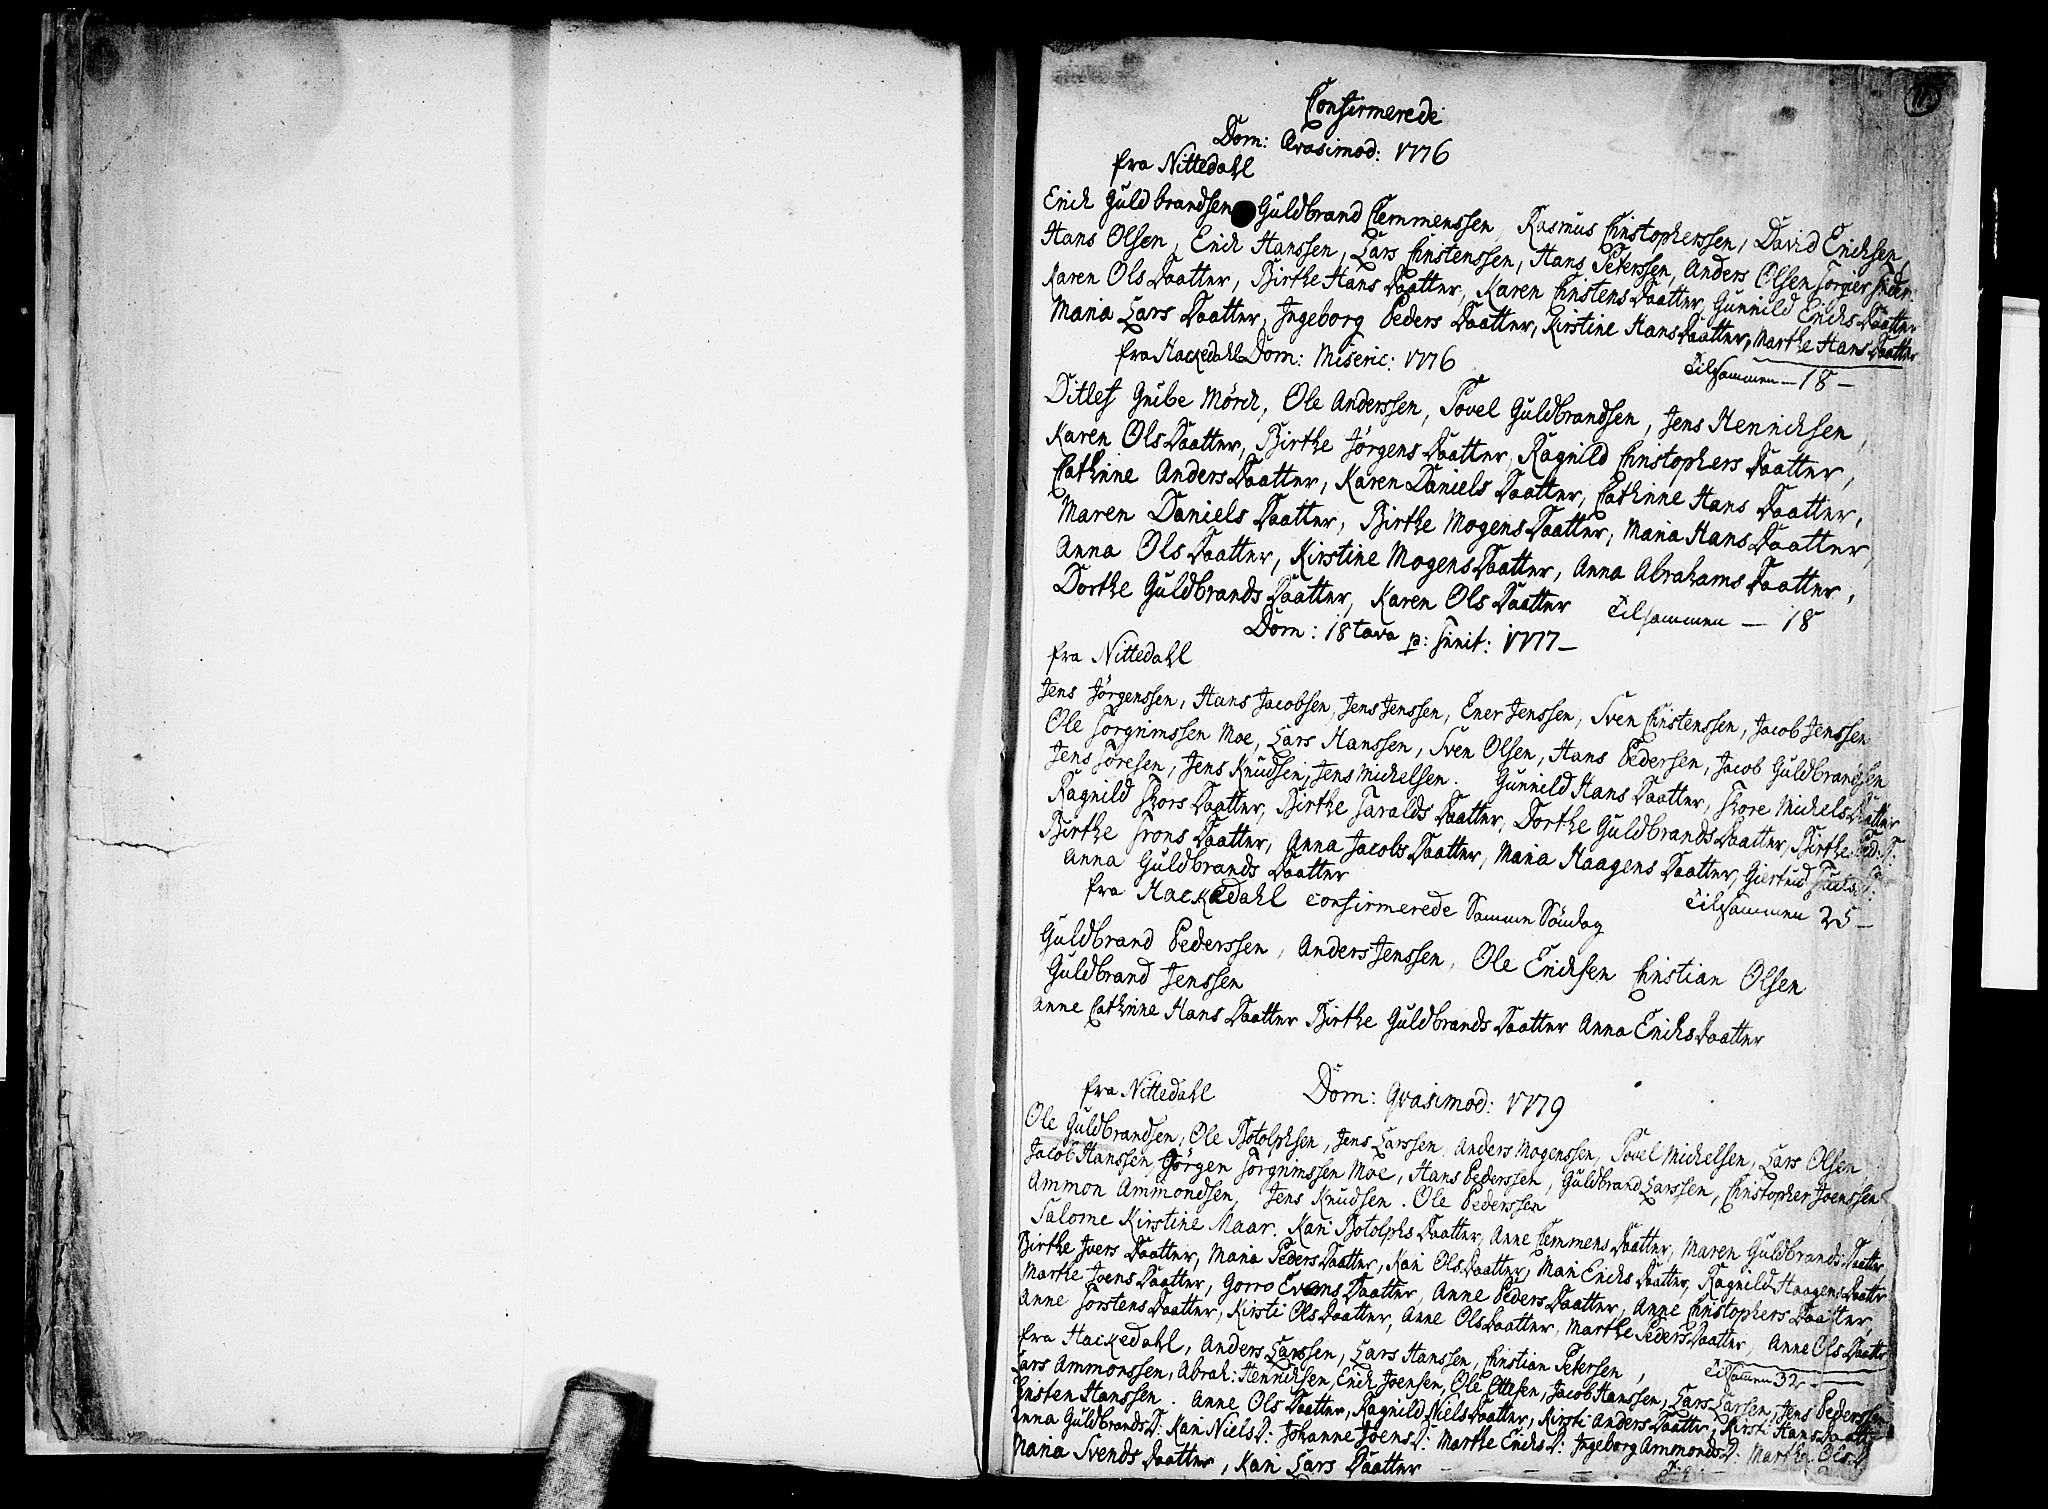 Confirmerede
Dom: Qvasimod: 1776
fra Nittedahl
Erich Guldbrandsen Guldbrand Clemmenssen, Rasmus Christopherssen, David Erichsen,
Hans Olsen, Erich Hanssen, Lars Christenssen, Hans Peterssen, Anders Olsen
Karen OlsDaatter, Birthe Hans Daatter, Karen Christens Daatter, Gunnild Erichs Daatter
Maria Lars Daatter, Ingeborg Peders Daatter, Kirstine Hans Daatter, Marthe Hans Daatter
Tilsammen - 18 -
fra Hackedahl Dom: Miseric: 1776
Ditlef Gribe Mörch, Ole Anderssen, Povel Guldbrandsen, Jens Henrichsen,
Karen Ols Daatter, Birthe Jörgens Daatter, Ragnild Christophers Daatter,
Cathrine Anders Daatter, Karen Daniels Daatter, Cathrine Hans Daatter,
Maren Daniels Daatter, Birthe Mogens Daatter, Maria Hans Daatter,
Anna Ols Daatter, Kirstine Mogens Daatter, Anna Abrahams Daatter,
Dorthe Guldbrands Daatter, Karen Ols Daatter Tilsammen - 18
Dom: 18tava p: Trinit: 1777 -
fra Nittedahl
Jens Jörgenssen, Hans Jacobsen, Jens Jenssen, Ener Jenssen, Sven Christenssen, Jacob Jenssen
Ole Torgrimssen Moe, Lars Hanssen, Sven Olsen, Hans Pedersen, Jacob Guldbrandsen
Jens Toresen, Jens Knudsen, Jens Michelsen. Gunnild Hans Daatter, Thore Michels Daatter
Ragnild Thors Daatter, Birthe Taralds Daatter, Dorthe Guldbrands Daatter, Birthe Ped: D:
Birthe Trons Daatter, Anna Jacobs Daatter, Maria Haagens Daatter, Giertrud
Anna Guldbrands Daatter
Tilsammen 25 -
fra Hackedahl confirmerede Samme Söndag
Guldbrand Pederssen, Anders Jenssen, Ole Erichsen Christian Olsen
Guldbrand Jenssen
Anne Cathrine Hans Daatter Birthe Guldbrands Daatter Anna Erichsdaatter
fra Nittedahl Dom: Qvasimod: 1779
Ole Guldbrandsen, Ole Botolphsen, Jens Larssen, Anders Mogenssen, Povel Michelsen, Lars Olsen
Jacob Hanssen, Jörgen Torgrimssen Moe, Hans Pederssen, Guldbrand Larssen, Christopher Joenssen
Ammon Ammondsen, Jens Knudsen. Ole Pederssen
Salome Kirstine Maar. Kari Botolphs Daatter, Anne Clemmens Daatter, Maren Guldbrands Daatter
Birthe Ivers Daatter, Maria Peders Daatter, Kari Ols Daatter, Mari Erichs Daatter, Ragnild Haagens Daatter
Marthe Joens Daatter, Gorro Evens Daatter, Anne Peders Daatter, Anne Christophers Daatter,
Anne Torstens Daatter, Kirsti Ols Daatter, Anne Ols Daatter, Marthe Peders Daatter, Anne Ols Daatter
Tilsammen 32 -
fra Hackedahl, Anders Larssen, Lars Hanssen, Christian Petersen,
Lars Ammonssen, Abrah: Henrichsen, Erich Joensen, Ole Ottesen, Jacob Hanssen, Lars Larsen, Jens Pederssen
Christen Hanssen. Anne Ols Daatter, Ragnild Niels Daatter, Kirsti Anders Daatter, Kirsti Hans Daatter
Anna Guldbrands D: Kari Niels D: Johanne Joens D: Marthe Erichs D: Ingeborg Ammonds D: Marthe Ols D
Maria Svends Daatter, Kari Lars Daatter